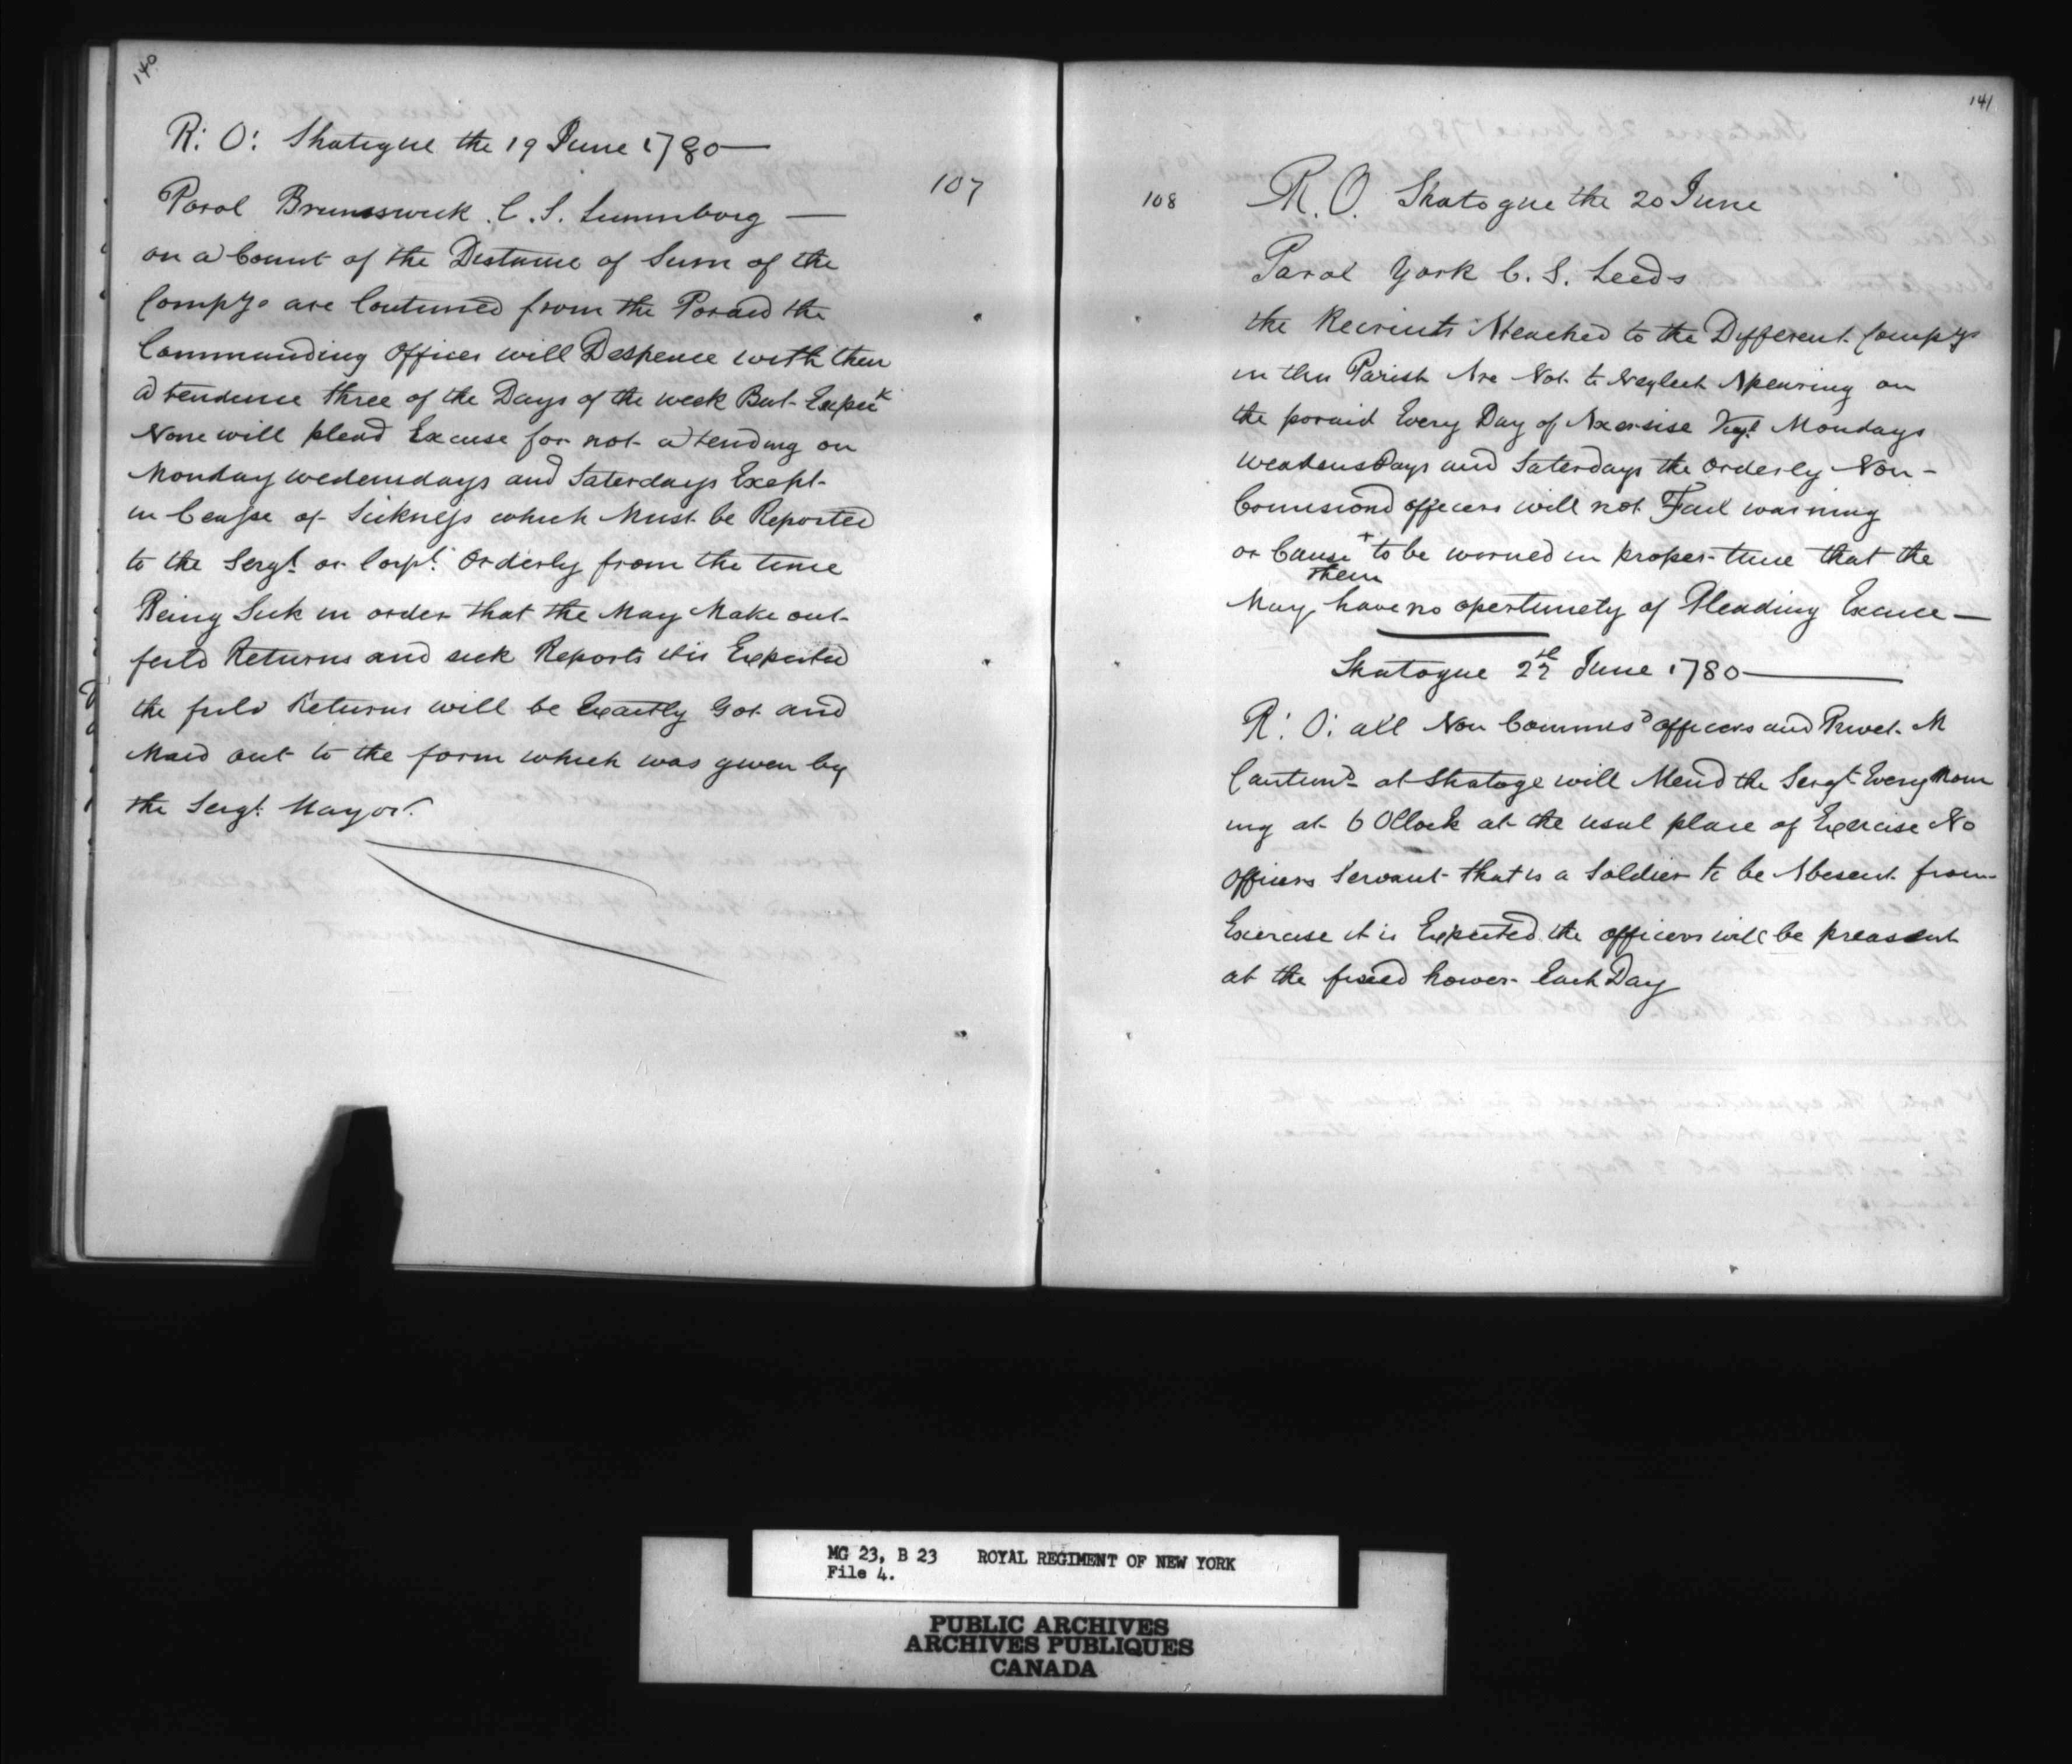 140
R: O: Shatigue the 19 June 1780—
107
Parol Brunsswick. C. S. Lunnborg —
on a Count of the Distance of Sum of the
Compys are Contuned from the Poraid the
Commanding Officer will Despence with then
atendence three of the Days of the week But Expect
None will plead Excuse for not atending on
Monday wedensdays and Saterdays Exept
in Cease of Sickness which Must be Reported
to the Sergt. or Corpl. Orderly from the time
Being Sick in order that the May Make out
feild Returns and sick Reports it is Expected
the feild Returns will be Exactly Got and
Maid out to the form which was given by
the Sergt. Mayor.
141
108
R. O. Shatogue the 20 June
Parol York C. S. Leeds
the Recruits Ateached to the Different Compys
in this Parish Are Not to Neglect Apearing on
the poraid Every Day of Axersise Mondays
weadensdays and Saterdays the orderly Non-
Comisiond officers will not Fail warning
or Cause + to be warned in proper time that the
them
May have no opertunety of Pleading Excuse —
Shatogue June 1780—
R: O: all Non Commisd officers and Privet M
Cantund at Shatoge will Atend the Sergt Every Morn
ing at 6 OClock at the usul place of Exercise No
officers Servant that is a Soldier to be Abesent from
Exercise it is Expected the officers will be preasent
at the fixed hower Each Day
MG 23, B 23 ROYAL REGIMENT OF NEW YORK
File 4.
PUBLIC ARCHIVES
ARCHIVES PUBLIQUES
CANADA